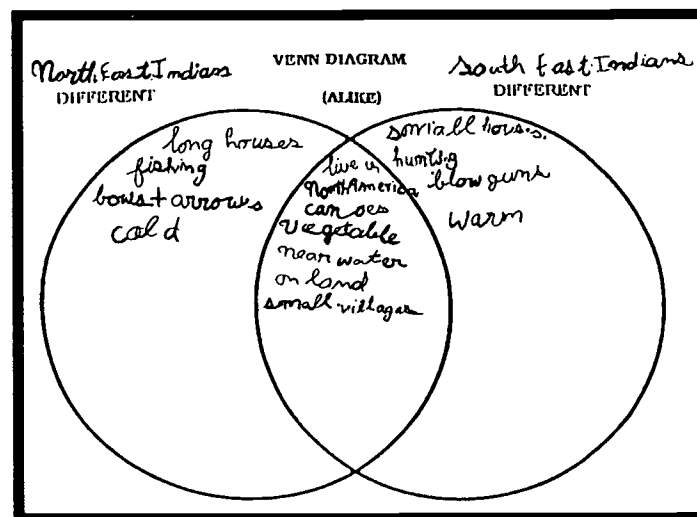 VENN DIAGRAM
(ALIKE)
North East Indians
DIFFERENT
South East Indians
DIFFERENT
long houses
fishing
bows + arrows
cold
live in
North America
canoes
vegetable
near water
on land
small villages
small houses.
hunting
blow guns
warm